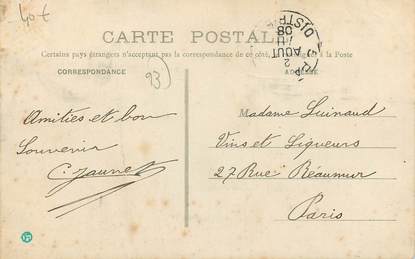 40 €
CARTE POSTALE
Certains pays étrangers n'acceptent pas la correspondance de ce côté, à la Poste
CORRESPONDANCE
ADRESSE
93)
2
AOUT
08
DISTRI
Amitiés et bon
Souvenir
C. Jaunet
Madame Luinaud
Vins et Liqueurs
27 Rue Réaumur
Paris